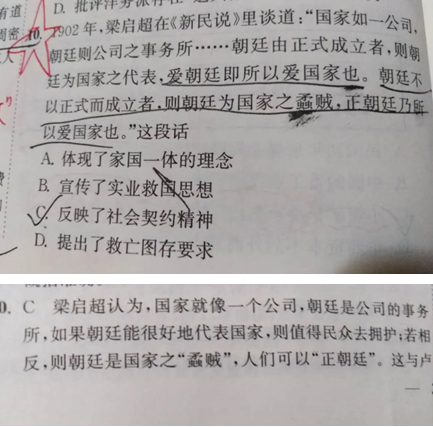 有道
D. 批评洋务派存在
周密
10. 1902年,梁启超在《新民说》里谈道:“国家如一公司,
朝廷则公司之事务所……朝廷由正式成立者,则朝
廷为国家之代表,爱朝廷即所以爱国家也。朝廷不
以正式而成立者,则朝廷为国家之蟊贼,正朝廷乃所
以爱国家也。”这段话
A. 体现了家国一体的理念
B. 宣传了实业救国思想
C. 反映了社会契约精神
D. 提出了救亡图存要求
0. C 梁启超认为,国家就像一个公司,朝廷是公司的事务
所,如果朝廷能很好地代表国家,则值得民众去拥护;若相
反,则朝廷是国家之“蟊贼”,人们可以“正朝廷”。这与卢